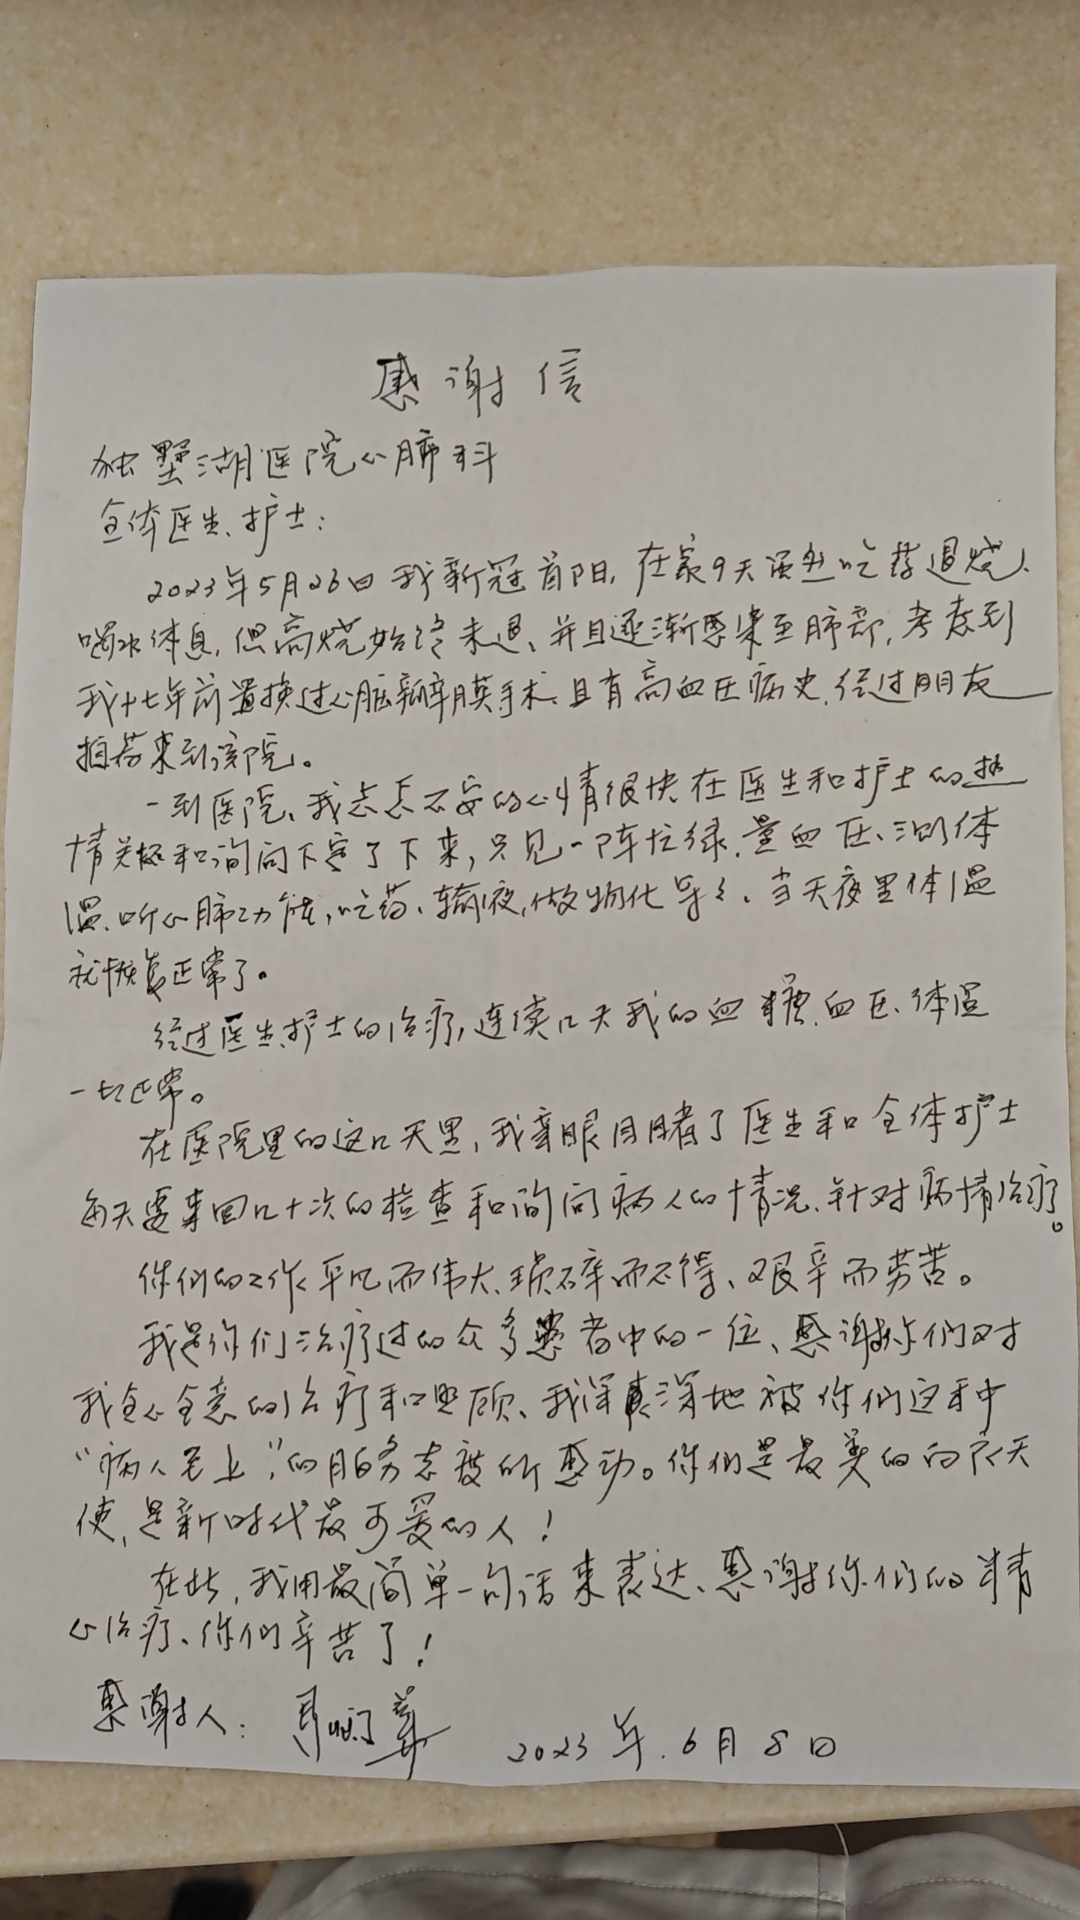 感谢信
独墅湖医院心肺科
全体医生、护士:
2023年5月26日我新冠首阳,在家9天强烈吃药退烧、
喝水休息,但高烧始终未退、并且逐渐感染至肺部,考虑到
我十七年前置换过心脏瓣膜手术、且有高血压病史、经过朋友
推荐来到该院。
一到医院、我忐忑不安的心情很快在医生和护士的热
情关怀和询问下安了下来,只见一阵忙绿、量血压、测体
温、听心肺功能,吃药、输液,做物化等等、当天夜里体温
就恢复正常了。
经过医生护士的治疗,连续几天我的血糖、血压、体温
一切正常。
在医院里的这几天里,我亲眼目睹了医生和全体护士
每天要来回几十次的检查和询问病人的情况、针对病情治疗。
你们的工作平凡而伟大、琐碎而不得、艰辛而劳苦。
我是你们治疗过的众多患者中的一位、感谢你们对
我全心全意的治疗和照顾、我深深地被你们这种
“病人至上”的服务态度所感动。你们是最美的白衣天
使,是新时代最可爱的人!
在此,我用最简单一句话来表达、感谢你们的精
心治疗、你们辛苦了!
感谢人:
2023年.6月8日